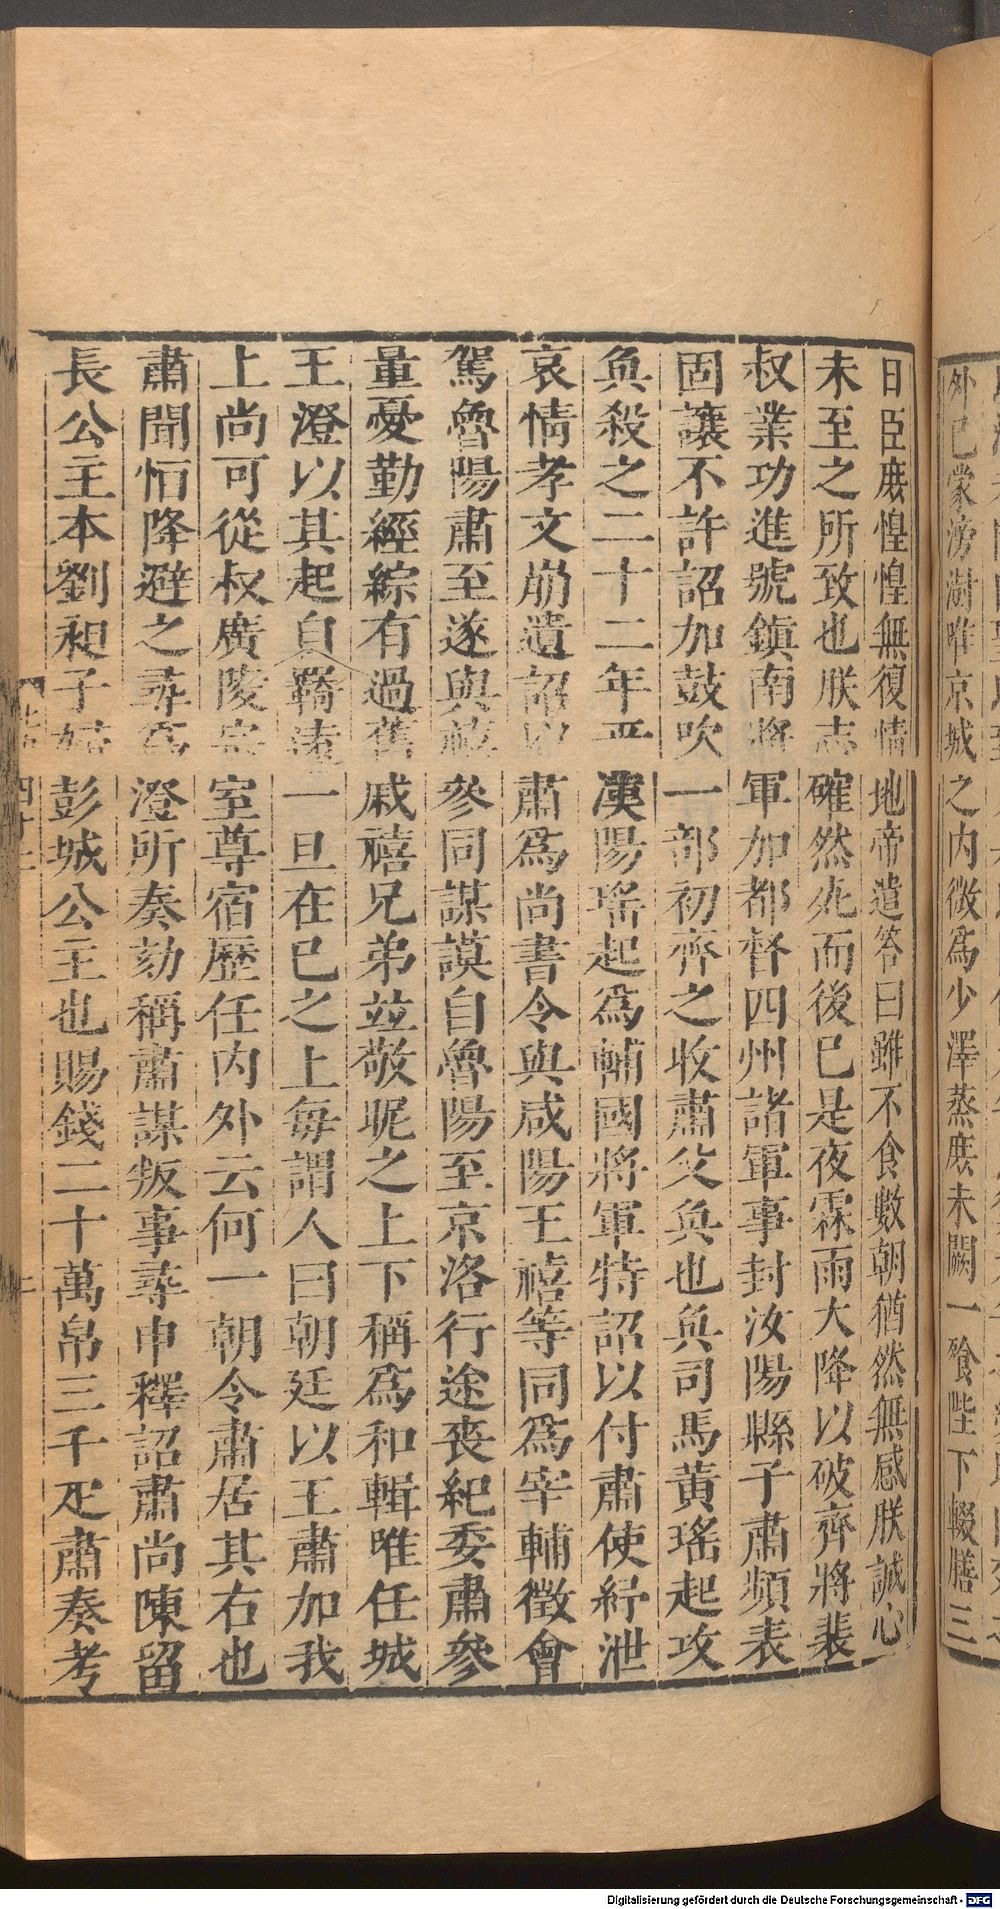 外已蒙滂澍唯京城之内微爲少澤蒸庶未闕一飡陛下輟膳三
日臣庶惶惶無復情地帝遣答曰雖不食數朝猶然無感朕誠心
未至之所致也朕志確然死而後已是夜霖雨大降以破齊將裴
叔業功進號鎮南將軍加都督四州諸軍事封汝陽縣子肅頻表
固讓不許詔加鼓吹一部初齊之收肅父奐也奐司馬黃瑤起攻
奐殺之二十二年平漢陽瑤起爲輔國將軍特詔以付肅使紓泄
哀情孝文崩遺詔以肅爲尚書令與咸陽王禧等同爲宰輔徵會
駕魯陽肅至遂與禧參同謀謨自魯陽至京洛行途喪紀委肅參
量憂勤經綜有過舊戚禧兄弟並敬昵之上下稱爲和輯唯任城
王澄以其起自羇遠一旦在已之上每謂人曰朝廷以王肅加我
上尚可從叔廣陵宗室尊宿歷任内外云何一朝令肅居其右也
肅聞恒降避之尋爲澄所奏劾稱肅謀叛事尋申釋詔肅尚陳留
長公主本劉昶子婦彭城公主也賜錢二十萬帛三千疋肅奏考
四十二
Digitalisierung gefördert durch die Deutsche Forschungsgemeinschaft - DFG